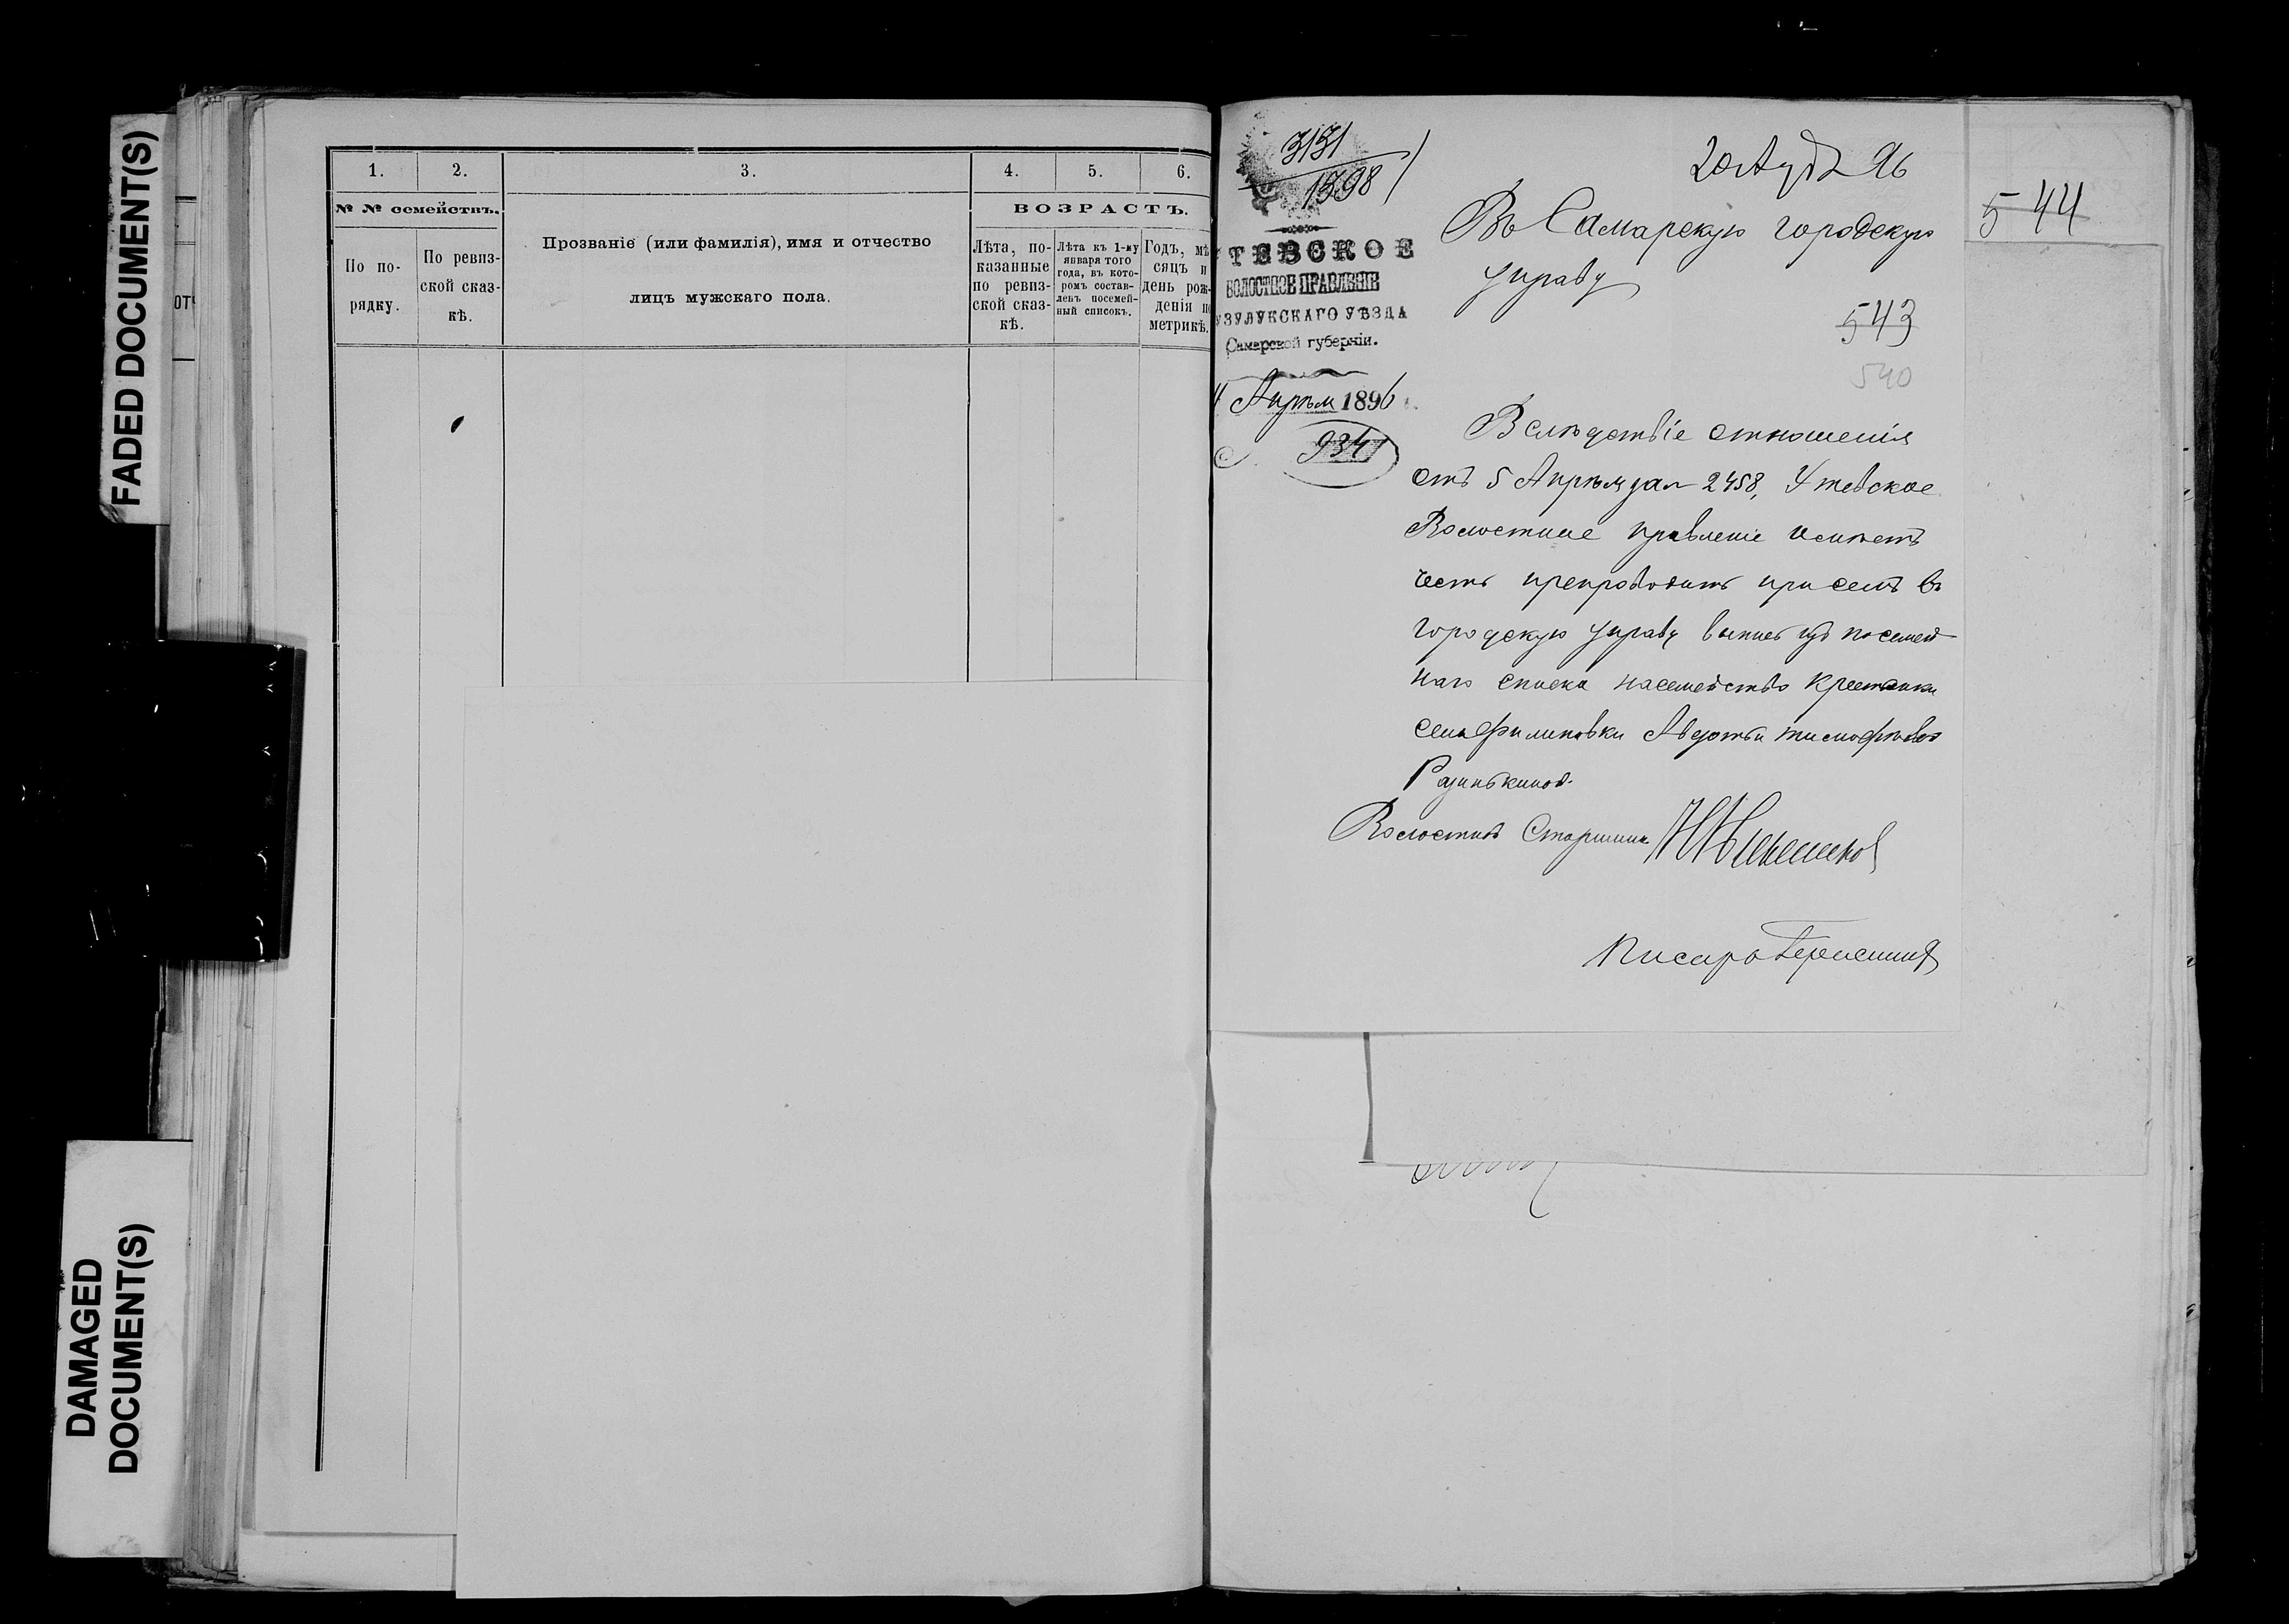 FADED DOCUMENT(S)
DAMAGED
DOCUMENT(S)
1. 2. 3. 4. 5. 6.
№ № семействъ.
По по-
рядку.
По ревиз-
ской сказ-
кѣ.
Прозваніе (или фамилія), имя и отчество
лицъ мужскаго пола.
ВОЗРАСТЪ.
Лѣта, по-
казанные
по ревиз-
ской сказ-
кѣ.
Лѣта къ 1-му
января того
года, въ кото-
ромъ состав-
ленъ посемей-
ный списокъ.
Годъ, мѣ
сяцъ и
день рож-
денія п
метрикѣ.
3131
1398
ТЕВСКОЕ
ВОЛОСТНОЕ ПРАВЛЕНІЕ
УЗУЛУКСКАГО УѢЗДА
Самарской губерніи.
Апрѣля 1896
934
96
544
Въ Самарскую городскую
управу
543
540
Вслѣдствіе отношенія
отъ 5 Апрѣля за № 2458, Утевское
Волостное правленіе имѣетъ
честь препроводить при семъ въ
городскую управу выпись изъ посемей-
наго списка на семейство крестьянки
села Филиповки Авдотьи Тимофѣевой
Разинькиной.
Волостной Старшина
Писарь